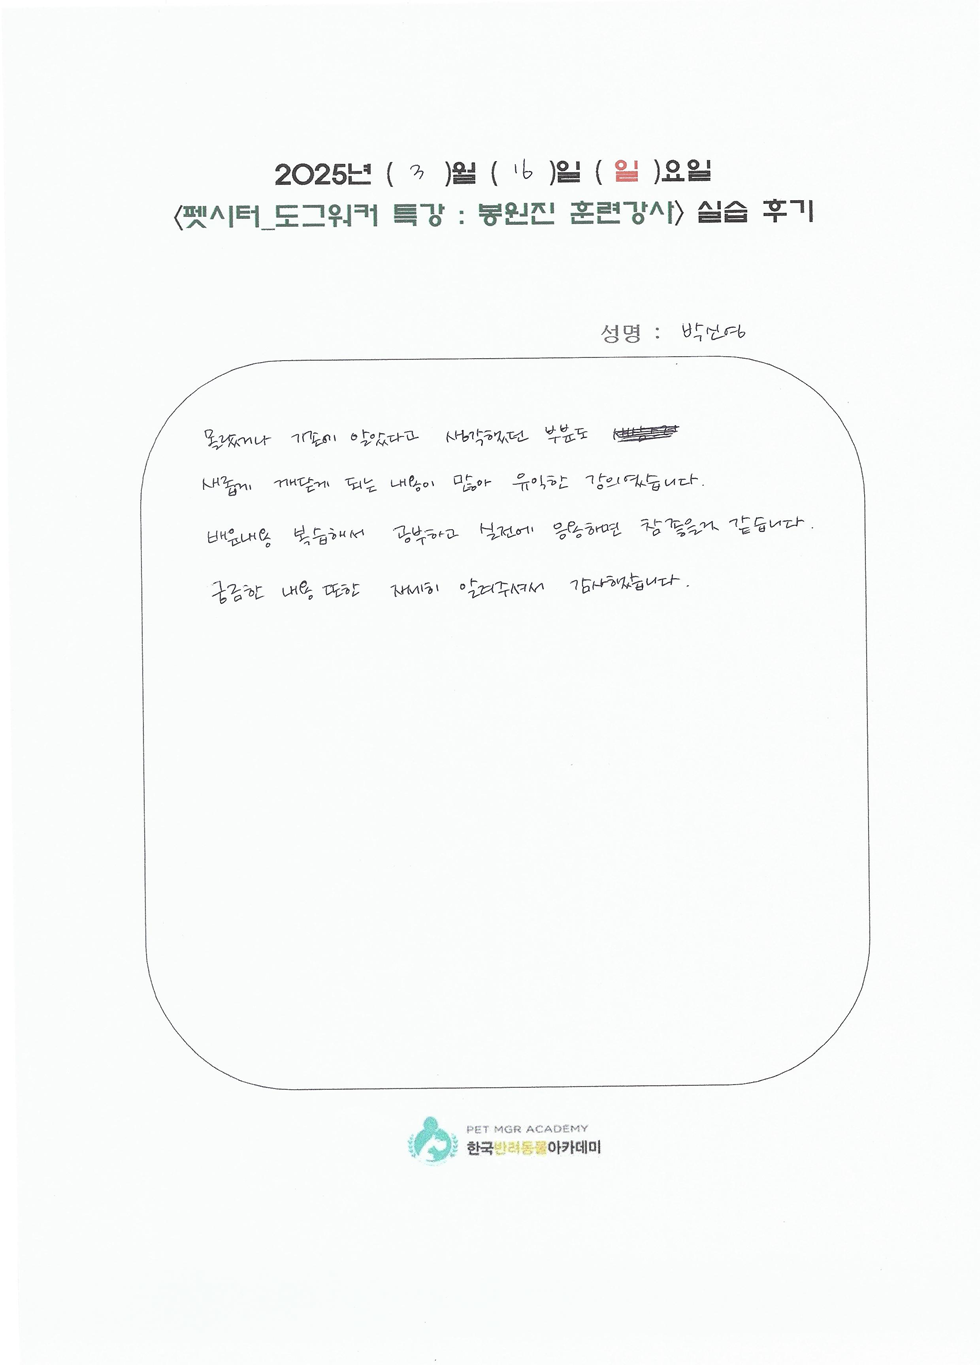 2025년 ( 3 )월 ( 16 )일 ( 일 )요일
<펫시터_도그워커 특강 : 봉원진 훈련강사> 실습 후기
성명 : 박선영
몰랐거나 기존에 알았다고 생각했던 부분도
새롭게 깨닫게 되는 내용이 많아 유익한 강의였습니다.
배운내용 복습해서 공부하고 실전에 응용하면 참 좋을거 같습니다.
궁금한 내용 또한 자세히 알려주셔서 감사했습니다.
PET MGR ACADEMY
한국반려동물아카데미